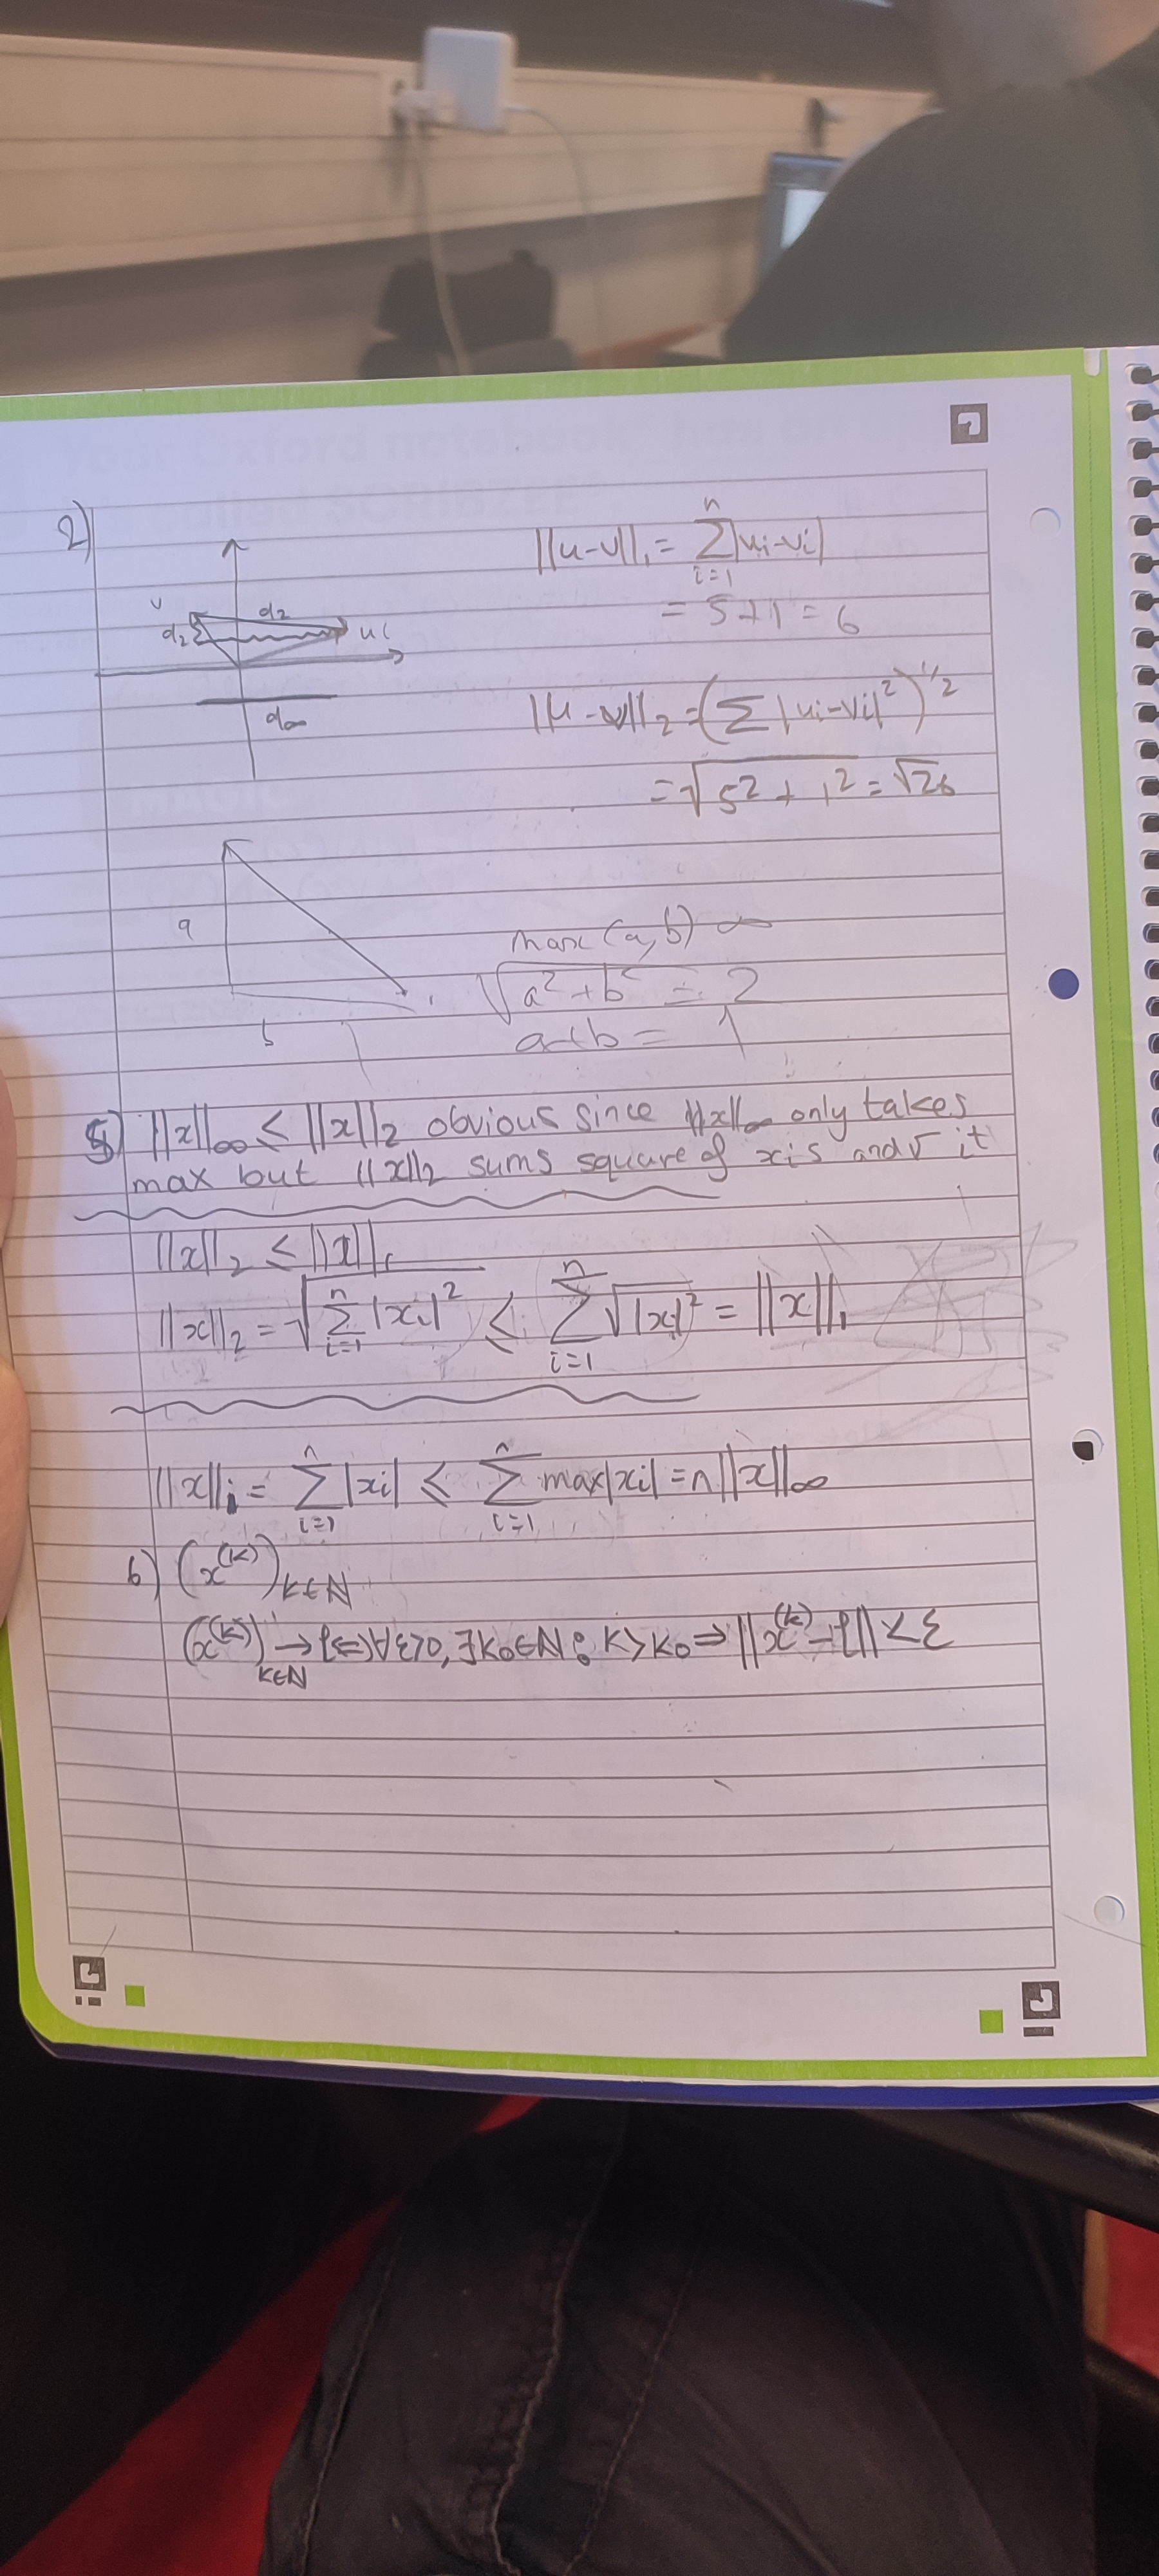 2)
||u-v||₁ = Σ_{i=1}^{n} |ui-vi|
= 5+1 = 6
v
d2
d2
u
d∞
||u-v||₂ = (Σ |ui-vi|²)^{1/2}
= √(5² + 1²) = √26
a
b
max(a,b) ∞
√(a²+b²) = 2
a+b = 1
5) ||x||∞ ≤ ||x||₂ obvious since ||x||∞ only takes
max but ||x||₂ sums square of xis and √ it
||x||₂ ≤ ||x||₁
||x||₂ = √(Σ_{i=1}^{n} |xi|²) ≤ Σ_{i=1}^{n} √|xi|² = ||x||₁
||x||₁ = Σ_{i=1}^{n} |xi| ≤ Σ_{i=1}^{n} max|xi| = n||x||∞
6) (x^{(k)})_{k∈ℕ}
(x^{(k)})_{k∈ℕ} → ℓ ⇔ ∀ε>0, ∃k₀∈ℕ: k>k₀ ⇒ ||x^{(k)} - ℓ|| < ε